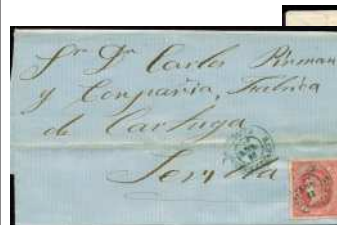 Sr Dn Carlos Pikman
y Compañia, Fabrica
de Cartuja
Sevilla